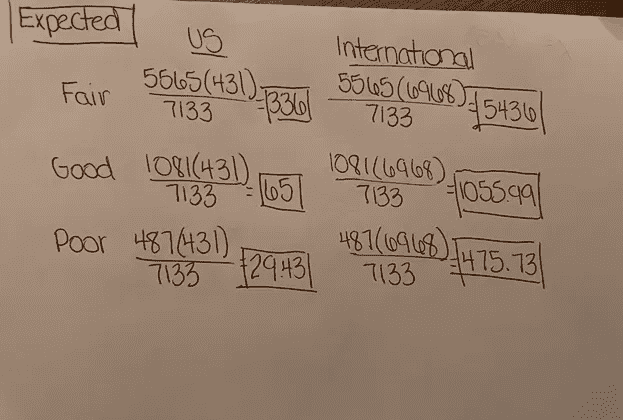 Expected
US International
Fair 5565(431)/7133 = 336 5565(6968)/7133 = 5436
Good 1081(431)/7133 = 65 1081(6968)/7133 = 1055.99
Poor 487(431)/7133 = 29.43 487(6968)/7133 = 475.73